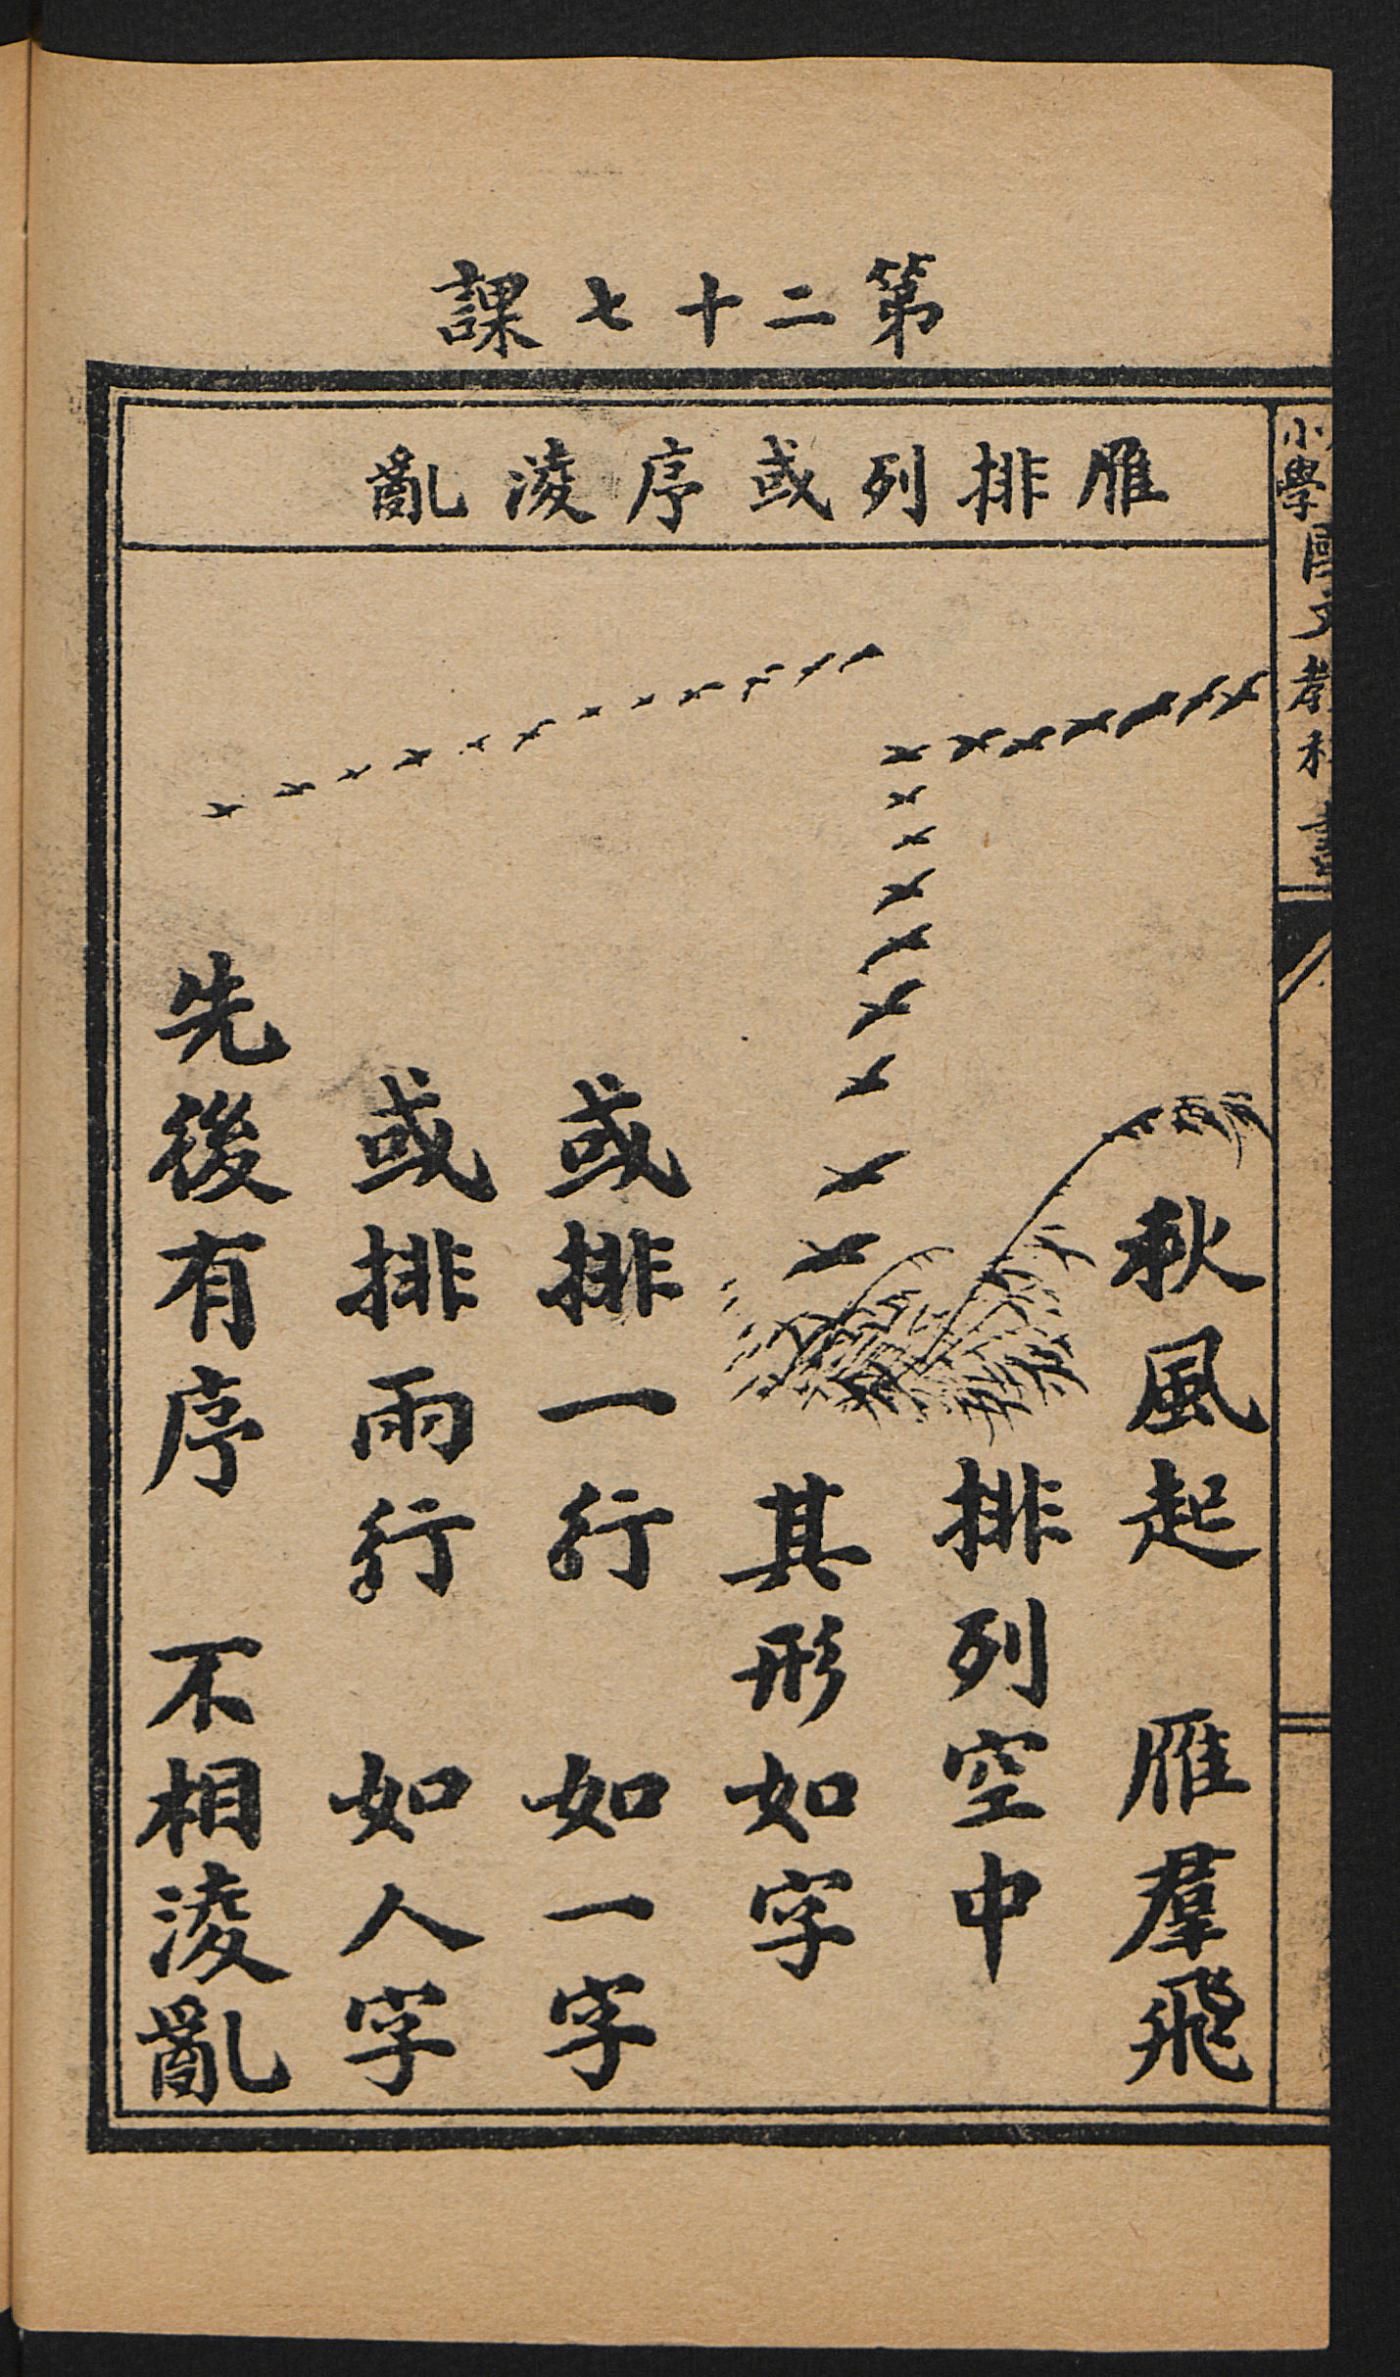 第二十七課
雁排列或序淩亂
小學國文教科書
秋風起 雁羣飛
排列空中
其形如字
或排一行 如一字
或排兩行 如人字
先後有序 不相淩亂